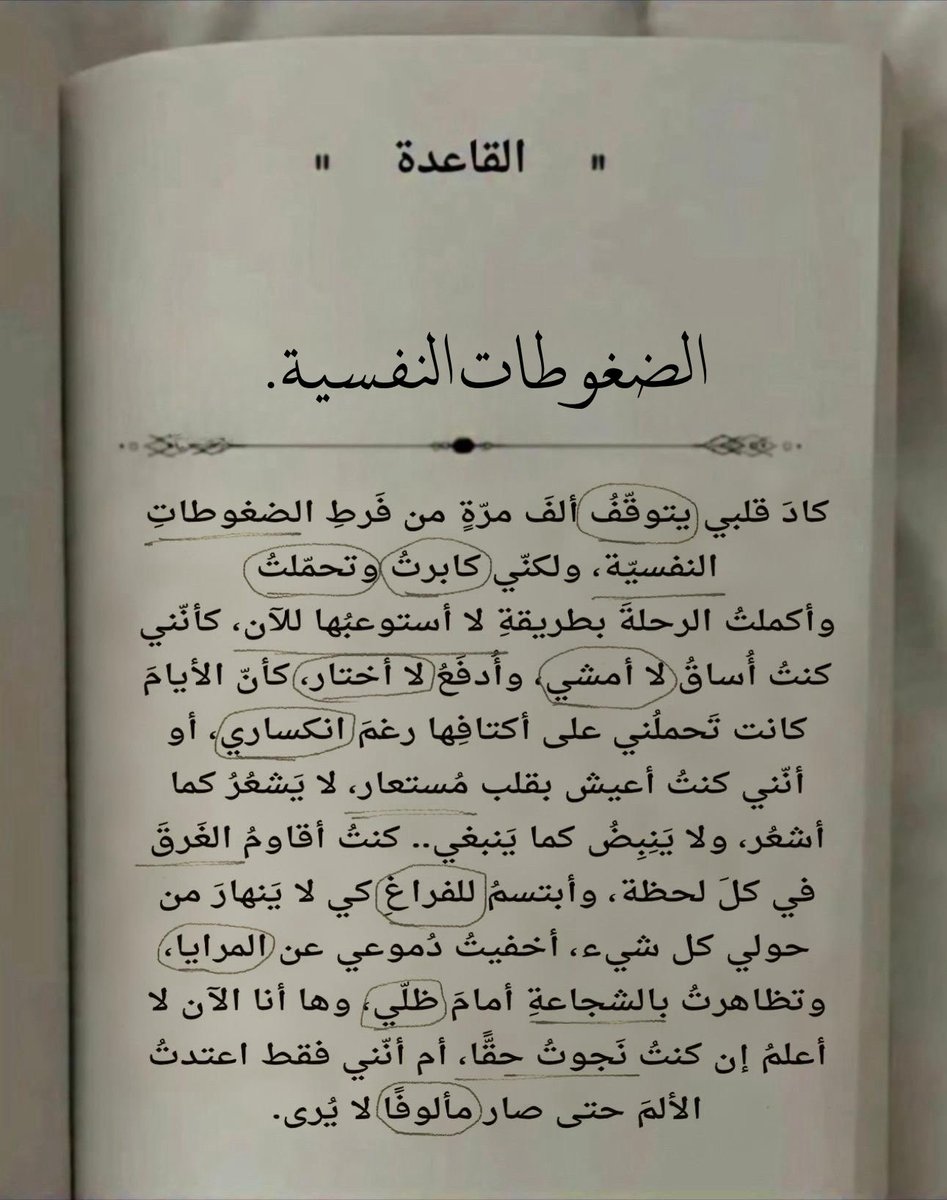 " القاعدة "
الضغوطات النفسية.
كادَ قلبي يتوقّفُ ألفَ مرّةٍ من فَرطِ الضغوطاتِ
النفسيّة، ولكنّي كابرتُ وتحمّلتُ
وأكملتُ الرحلةَ بطريقةِ لا أستوعبُها للآن، كأنّني
كنتُ أُساقُ لا أمشي، وأُدفَعُ لا أختار، كأنّ الأيامَ
كانت تَحملُني على أكتافِها رغمَ انكساري، أو
أنّني كنتُ أعيش بقلب مُستعار، لا يَشعُرُ كما
أشعُر، ولا يَنِبِضُ كما يَنبغي.. كنتُ أقاومُ الغَرقَ
في كلَ لحظة، وأبتسمُ للفراغِ كي لا يَنهارَ من
حولي كل شيء، أخفيتُ دُموعي عن المرايا،
وتظاهرتُ بالشجاعةِ أمامَ ظلّي، وها أنا الآن لا
أعلمُ إن كنتُ نَجوتُ حقًّا، أم أنّني فقط اعتدتُ
الألمَ حتى صار مألوفًا لا يُرى.